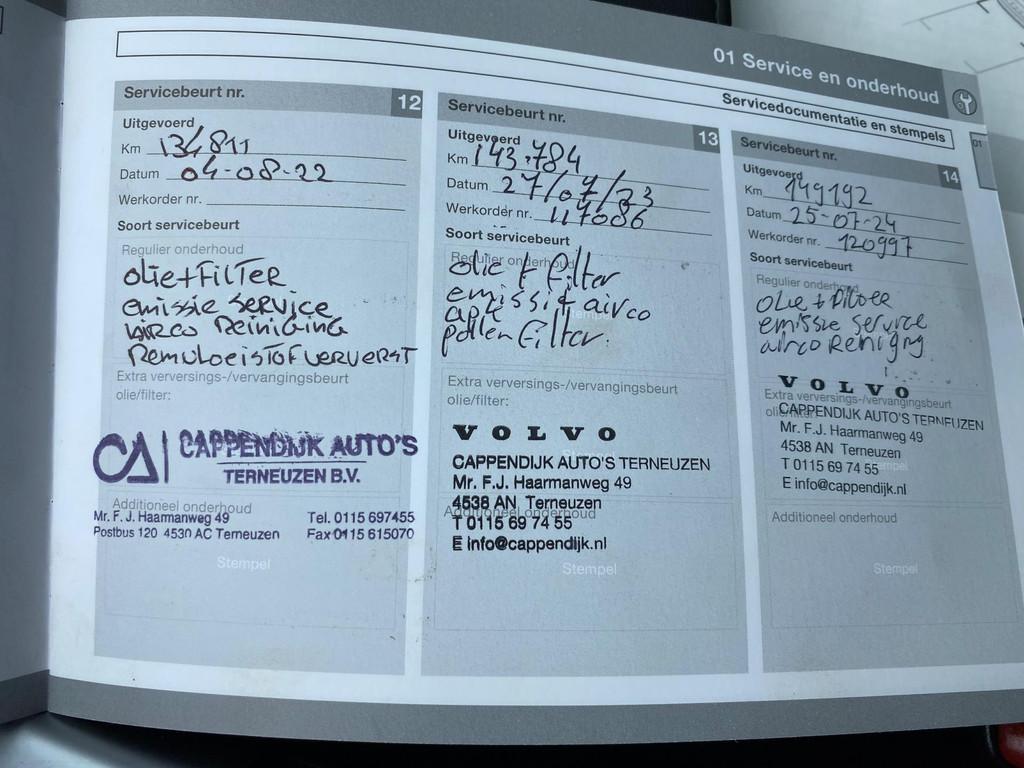 01 Service en onderhoud
Servicedocumentatie en stempels
01
Servicebeurt nr. 12
Uitgevoerd
Km 134811
Datum 04-08-22
Werkorder nr.
Soort servicebeurt
Regulier onderhoud
olie+FilTER
emissie service
airco Reiniging
Remvloeistof ververst
Extra verversings-/vervangingsbeurt
olie/filter:
CA CAPPENDIJK AUTO'S
TERNEUZEN B.V.
Additioneel onderhoud
Mr. F. J. Haarmanweg 49 Tel. 0115 697455
Postbus 120 4530 AC Terneuzen Fax 0115 615070
Stempel
Servicebeurt nr. 13
Uitgevoerd
Km 143.784
Datum 27/07/23
Werkorder nr. 117086
Soort servicebeurt
Regulier onderhoud
olie + filter
emissie airco
apk
pollen filter.
Stempel
Extra verversings-/vervangingsbeurt
olie/filter:
VOLVO
CAPPENDIJK AUTO'S TERNEUZEN
Mr. F.J. Haarmanweg 49
4538 AN Terneuzen
Additioneel onderhoud
T 0115 69 74 55
E info@cappendijk.nl
Stempel
Servicebeurt nr. 14
Uitgevoerd
Km 149192
Datum 25-07-24
Werkorder nr. 120997
Soort servicebeurt
Regulier onderhoud
olie + filter
emissie service
airco Reinigng
VOLVO
Extra verversings-/vervangingsbeurt
olie/filter:
CAPPENDIJK AUTO'S TERNEUZEN
Mr. F.J. Haarmanweg 49
4538 AN Terneuzen
T 0115 69 74 55
Stempel
E info@cappendijk.nl
Additioneel onderhoud
Stempel